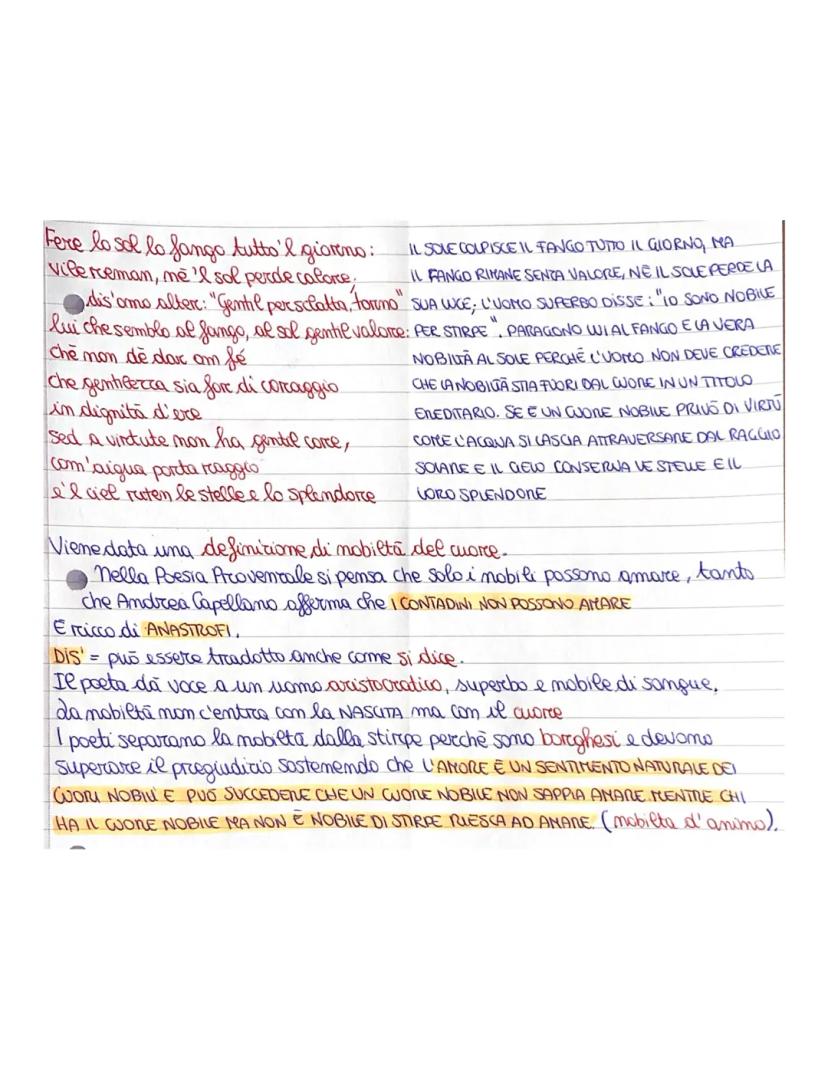 Fere lo sol lo fango tutto 'l giorno:
vile reman, né 'l sol perde calore;
dis'omo alter: "Gentil per sclatta torno"
lui che semblo al fango, al sol gentil valore:
ché non dè dar om fé
che gentilezza sia for di corraggio
in dignità d'ere
sed a virtute non ha gentil core,
com'aigua porta raggio
e 'l ciel riten le stelle e lo splendore
IL SOLE COLPISCE IL FANGO TUTTO IL GIORNO, MA
IL FANGO RIMANE SENZA VALORE, NÈ IL SOLE PERDE LA
SUA LUCE; L'UOMO SUPERBO DISSE: "IO SONO NOBILE
PER STIRPE". PARAGONO LUI AL FANGO E LA VERA
NOBILTÀ AL SOLE PERCHÈ L'UOMO NON DEVE CREDERE
CHE LA NOBILTÀ STIA FUORI DAL CUORE IN UN TITOLO
EREDITARIO. SE E UN CUORE NOBILE PRIVO DI VIRTÙ
COME L'ACQUA SI LASCIA ATTRAVERSARE DAL RAGGIO
SOLARE E IL CIELO CONSERVA LE STELLE E IL
LORO SPLENDORE
Viene data una definizione di nobiltà del cuore.
Nella Poesia Provenzale si pensa che solo i nobili possono amare, tanto
che Andrea Capellano afferma che I CONTADINI NON POSSONO AMARE
È ricco di ANASTROFI.
DIS' = può essere tradotto anche come si dice.
Il poeta dà voce a un uomo aristocratico, superbo e nobile di sangue.
La nobiltà non c'entra con la NASCITA ma con il cuore
I poeti separano la nobiltà dalla stirpe perchè sono borghesi e devono
superare il pregiudizio sostenendo che L'AMORE È UN SENTIMENTO NATURALE DEI
CUORI NOBILI E PUÒ SUCCEDERE CHE UN CUORE NOBILE NON SAPPIA AMARE MENTRE CHI
HA IL CUORE NOBILE MA NON È NOBILE DI STIRPE RIESCA AD AMARE. (nobiltà d'animo).